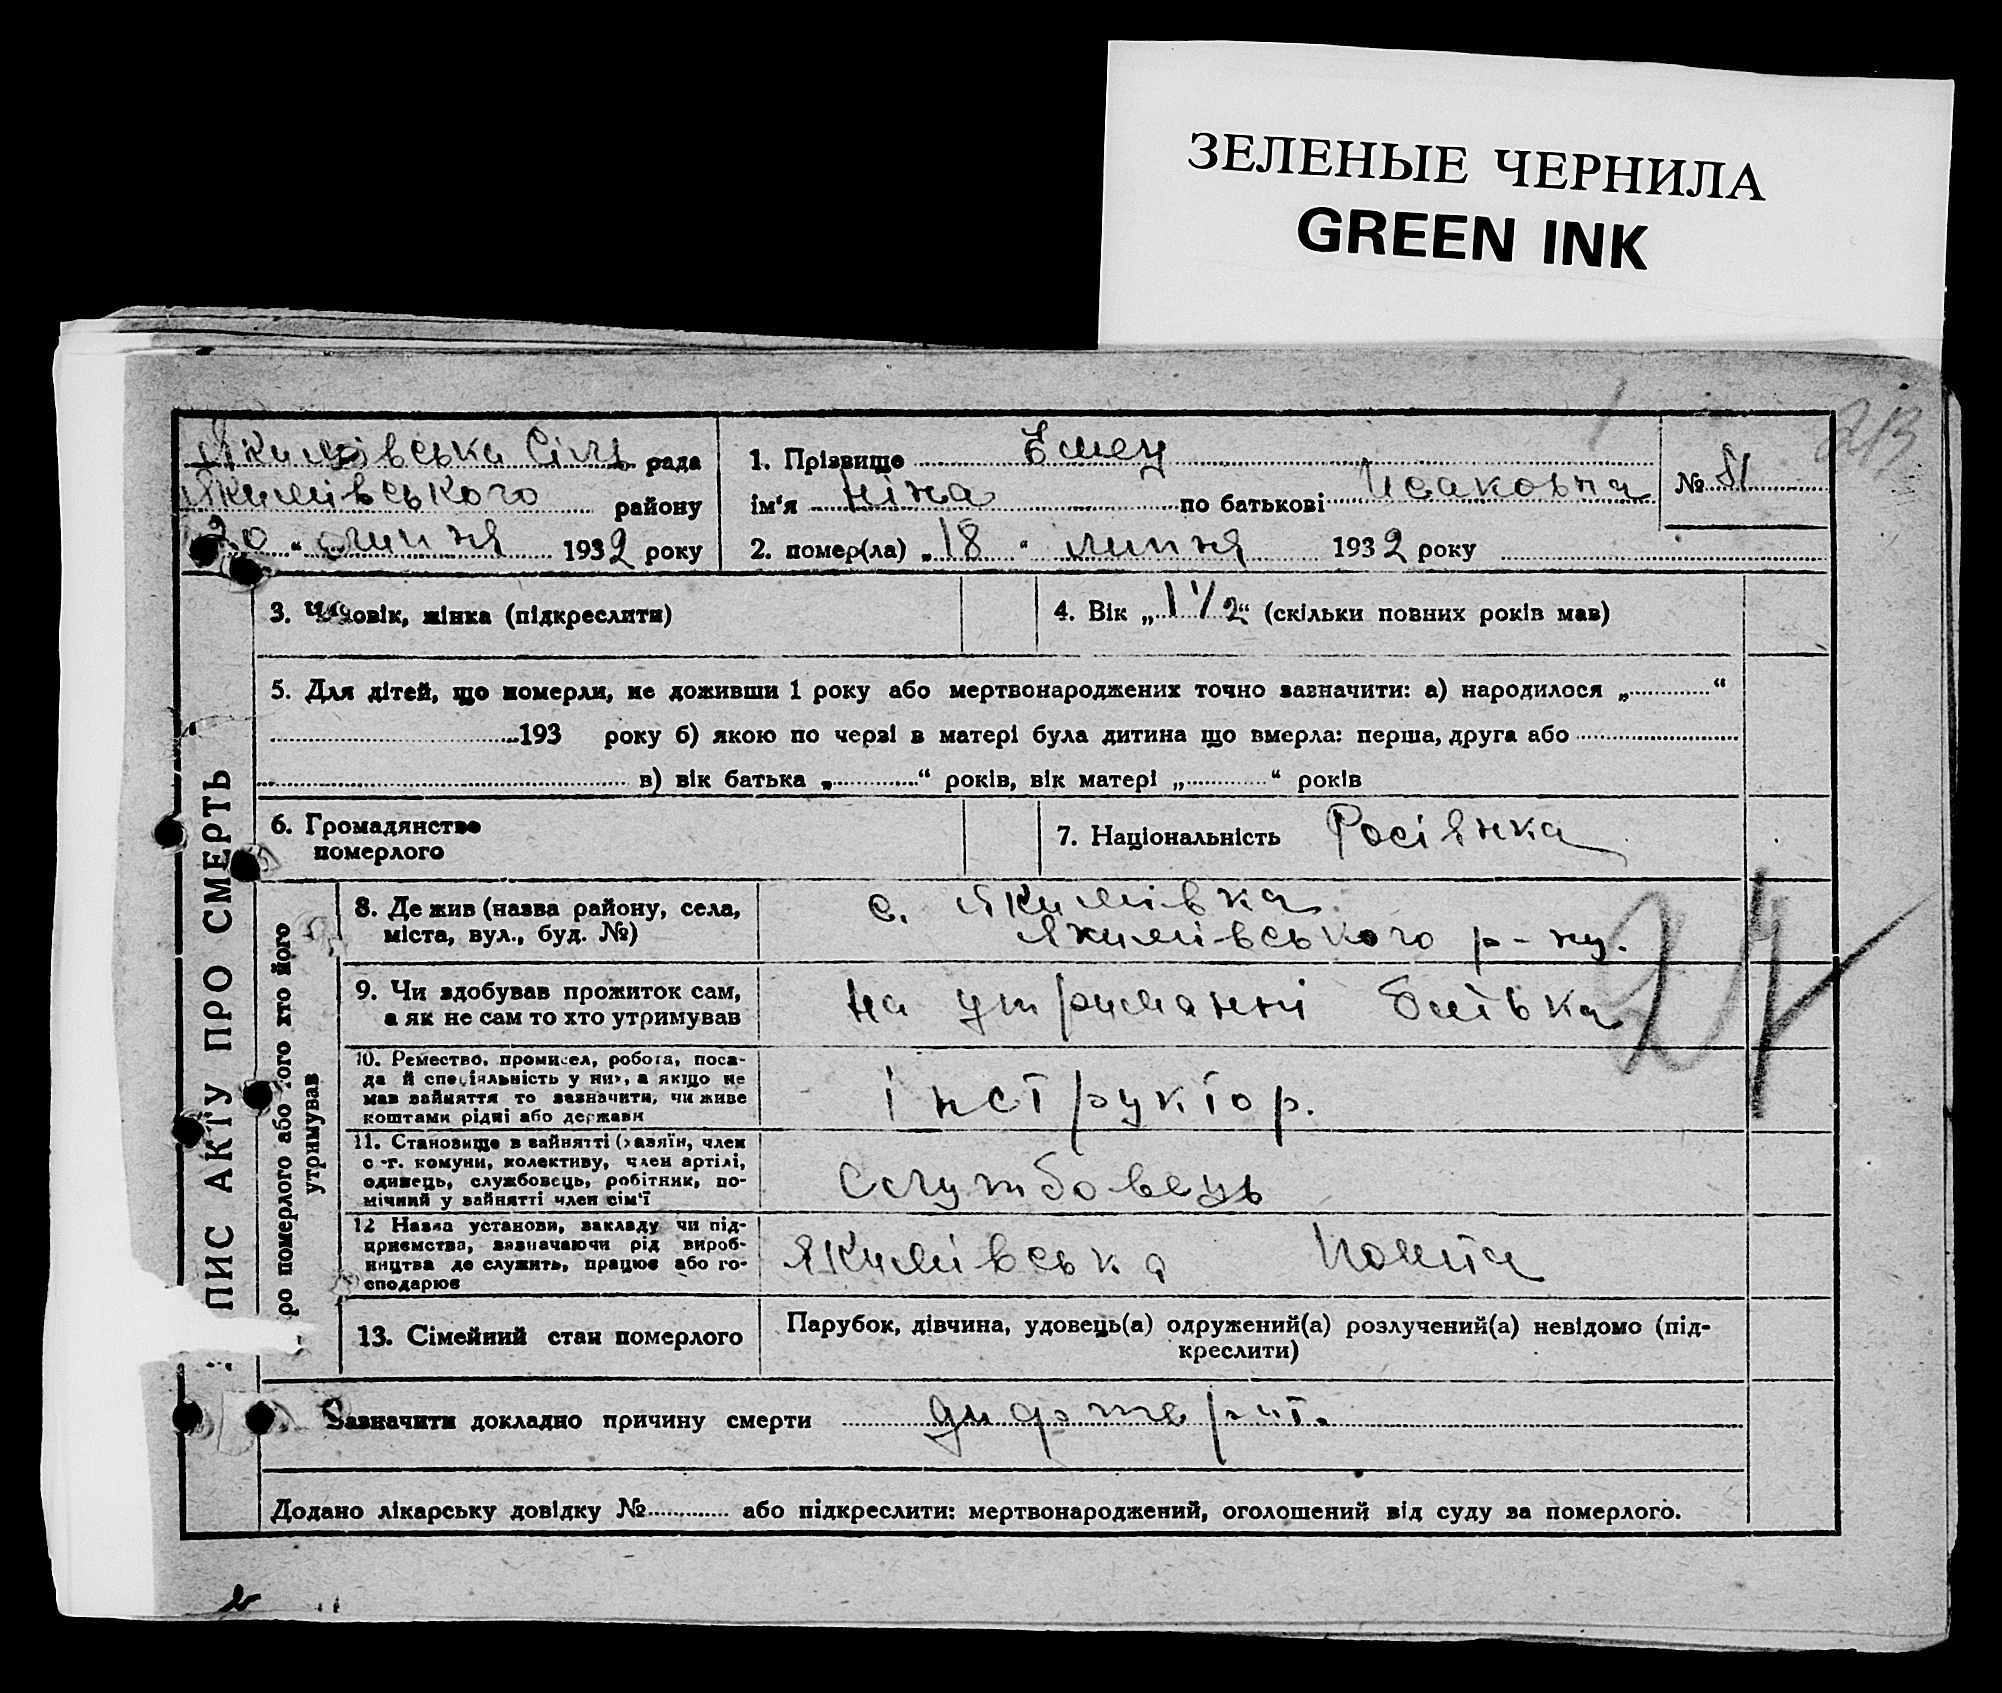 ЗЕЛЕНЫЕ ЧЕРНИЛА
GREEN INK
213
Якимівська Сіль рада
Якимівського району
20 " липня 1932 року
1. Прізвище Емец
ім'я Ніна по батькові Исаковна
№ 51
2. помер(ла) „18 " липня 1932 року
3. Чоловік, жінка (підкреслити)
4. Вік „1 1/2“ (скільки повних років мав)
5. Для дітей, що померли, не доживши 1 року або мертвонароджених точно зазначити: а) народилося „ “
193 року б) якою по черзі в матері була дитина що вмерла: перша, друга або
в) вік батька „ “ років, вік матері „ “ років
6. Громадянство
померлого
7. Національність Росіянка
8. Де жив (назва району, села,
міста, вул., буд. №)
с. Якимівка
Якимівського р-ну.
9. Чи здобував прожиток сам,
а як не сам то хто утримував
на утриманні батька
10. Ремество, промисел, робота, поса-
да й спеціяльність у них, а якщо не
мав зайняття то зазначити, чи живе
коштами рідні або держави
інструктор.
11. Становище в зайнятті (хазяїн, член
с.-г. комуни, колективу, член артілі,
одинець, службовець, робітник, по-
мічний у зайнятті член сім'ї
службовець
12 Назва установи, закладу чи під-
приємства, зазначаючи рід вироб-
ництва де служить, працює або го-
сподарює
Якимівська Пошта
13. Сімейний стан померлого
Парубок, дівчина, удовець(а) одружений(а) розлучений(а) невідомо (під-
креслити)
Зазначити докладно причину смерти дифтерит.
Додано лікарську довідку № або підкреслити: мертвонароджений, оголошений від суду за померлого.
ПИС АКТУ ПРО СМЕРТЬ
ро померлого або того хто його
утримував